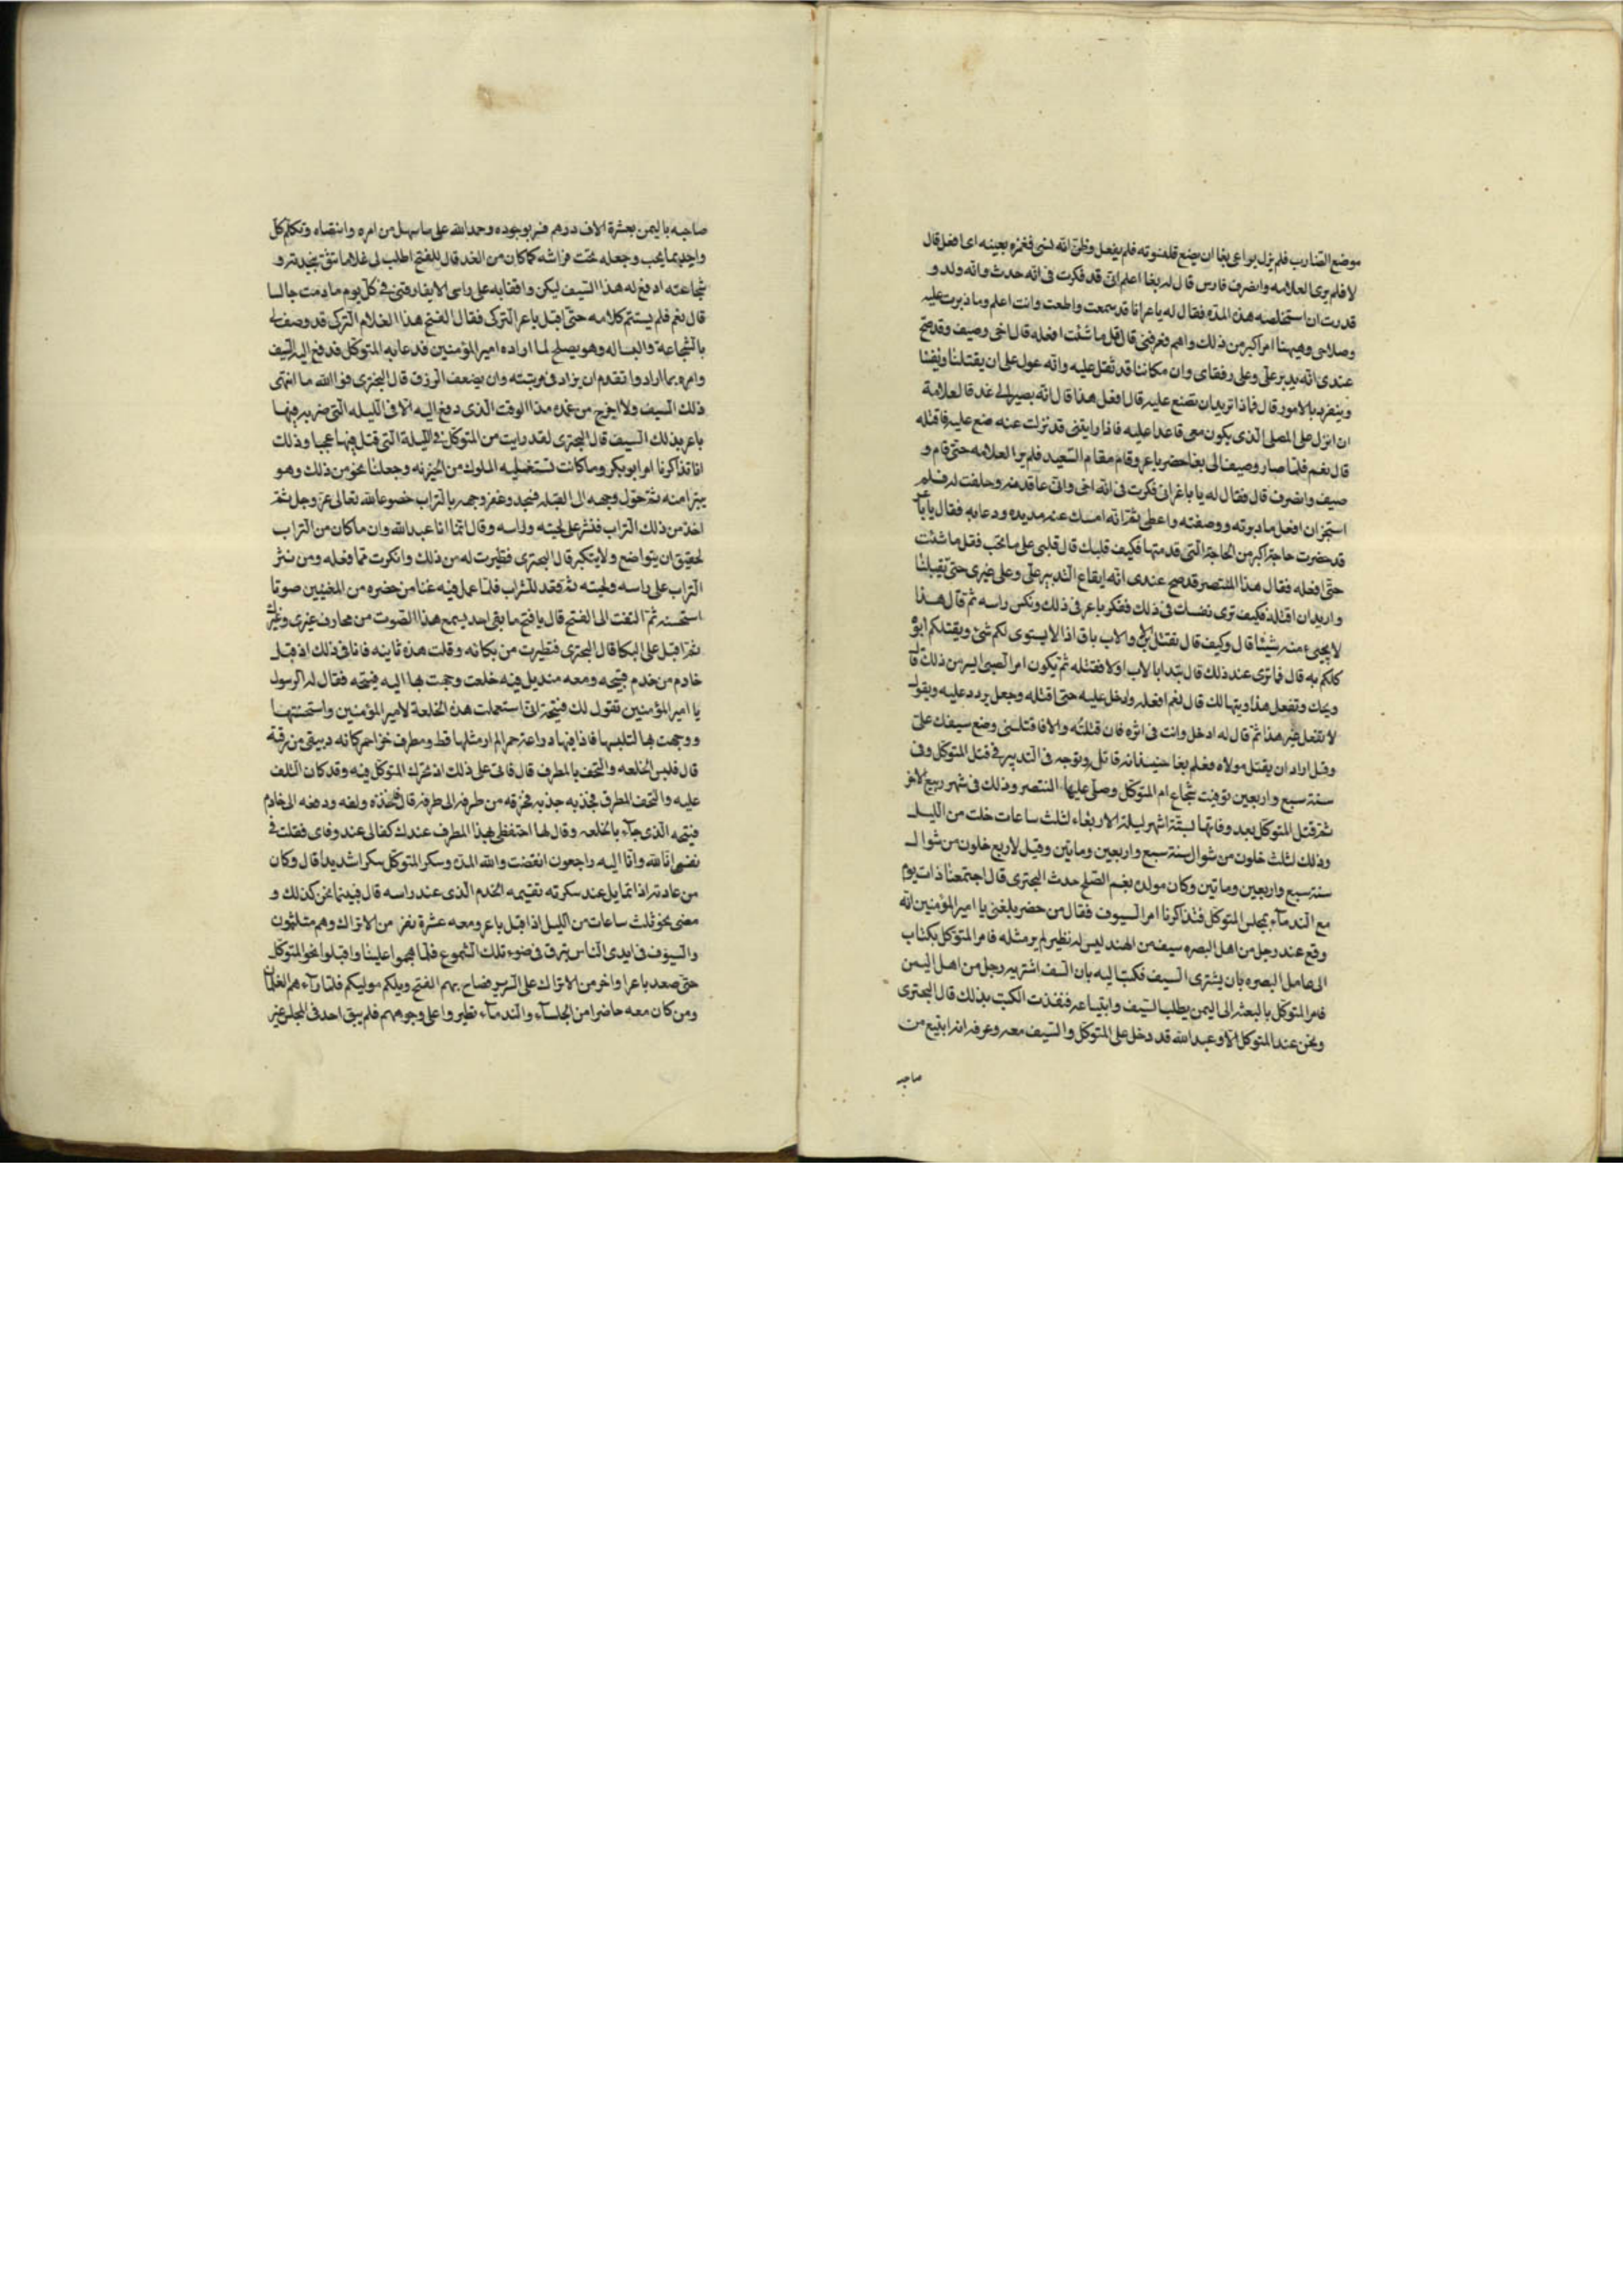 موضع الضارب فلم يزل يراعى بغا ان يضع قلنسوته فلم يفعل وظن انه نسى فغمزه بعينه اى افعل قال
لا فلم يرى العلامه وانصرف فارس قال له بغا اعلم انى قد فكرت فى انه حدث وانه ولد و
قد رت ان استخلصه هذه المدة فقال له ياعر انا قد سمعت واطعت وانت اعلم وما دبرت عليه
وصلاحى وهيهنا امر اكبر من ذلك واهم فعرفنى قال قل ما شئت افعله قال اخى وصيف وقد صح
عندى انه يدبر على وعلى رفقاى وان مكاننا قد ثقل عليه وانه عول على ان يقتلنا ويفنينا
وينفرد بالامور قال فماذا تريد ان تصنع عليه قال افعل هذا قال انه يصير الى غد قا لعلامة
ان انزل على المصلى الذى يكون معى قاعدا عليه فاذا رايتنى قد نزلت عنه ضع عليه فاقتله
قال نعم فلما صار وصيف الى بغا حضر باعر وقام مقام السعيد فلم ير العلامه حتى قام و
صيف وانصرف قال فقال له يا باغر انى فكرت فى انه اخى وانى عاقدته وحلفت له فلم
استجز ان افعل ما دبرته ووصفته واعطى ثم انه امسك عنه مديده ودعا به فقال يا با
قد حضرت حاجة اكبر من الحاجة التى قدمتها فكيف قلبك قال قلبى على ما تحب فقل ما شئت
حتى افعله فقال هذا المنتصر قد صح عندى انه ايقاع التدبير على وعلى غيرى حتى يقتلنا
واريد ان اقتله فكيف ترى نفسك فى ذلك ففكر باعر فى ذلك ونكس راسه ثم قال هذا
لا يجىء منه شيئا قال وكيف قال نقتل الابن والاب باق اذا لا يستوى لكم شئ ويقتلكم ابوه
كلكم به قال فما ترى عند ذلك قال نبدا بالاب اولا فنقتله ثم يكون امر الصبى ايسر من ذلك قا
ويحك وتفعل هذا ويتها لك قال نعم افعله وادخل عليه حتى اقتله وجعل يردد عليه ويقول
لا تفعل غير هذا ثم قال له ادخل وانت فى اثره فان قتلته والا فاقتلنى وضع سيفك على
وقل اراد ان يقتل مولاه فعلم بغا حينئذ انه قاتله وتوجه فى التدبير فى قتل المتوكل وفى
سنة سبع واربعين توفيت شجاع ام المتوكل وصلى عليها المنتصر وذلك فى شهر ربيع الاخر
ثم قتل المتوكل بعد وفاتها لستة اشهر ليلة الاربعاء لثلث ساعات خلت من الليل
وذلك لثلث خلون من شوال سنة سبع واربعين ومايتين وقيل لاربع خلون من شوال
سنة سبع واربعين ومايتين وكان مولده بفم الصلح حدث البحترى قال اجتمعنا ذات يوم
مع الندماء بمجلس المتوكل فتذاكرنا امر السيوف فقال من حضر بلغنى يا امير المؤمنين انه
وقع عند رجل من اهل البصره سيف من الهند ليس له نظير لم ير مثله فامر المتوكل بكتاب
الى عامل البصره بان يشترى السيف فكتب اليه بان السف اشتريه رجل من اهل اليمن
فامر المتوكل بالبعثه الى اليمن بطلب السيف وابتياعه فنفذت الكتب بذلك قال البحترى
ونحن عند المتوكل الا وعبد الله قد دخل على المتوكل والسيف معه وعرفه انه ابتيع من
صاحبه
صاحبه باليمن بعشرة الاف درهم فسر بوجوده وحمد الله على ما سهل من امره وانتضاه وتكلم كل
واحد بما يحب وجعله تحت فراشه كما كان من الغد قال للفتح اطلب لى غلاما تثق بنجدته و
شجاعته ادفع له هذا السيف ليكن واقفا به على راسى لا يفارقنى فى كل يوم ما دمت جالسا
قال نعم فلم يستتم كلامه حتى اقبل باعر التركى فقال الفتح هذا الغلام التركى قد وصف لى
بالشجاعة والبساله وهو يصلح لما اراده امير المؤمنين فدعا به المتوكل فدفع اليه السيف
وامره بما اراد وا تقدم ان يزاد فى مرتبته وان يضعف الرزق قال البحترى فوالله ما انتهى
ذلك السيف ولا اخرج من غمده مذا الوقت الذى دفع اليه الا فى الليله التى ضربه فيها
باعر بذلك السيف قال البحترى لقد رايت من المتوكل فى الليلة التى قتل فيها عجبا وذلك
انا تذاكرنا امر ابو بكر وما كانت تستعمله الملوك من الجبريه وجعلنا نخوض من ذلك وهو
يتبرا منه ثم حول وجهه الى القبله فسجد وعفر وجهه بالتراب خضوعا لله تعالى عز وجل ثم
اخذ من ذلك التراب فنثر على لحيته وراسه وقال انما انا عبد الله وان ما كان من التراب
لحقيق ان يتواضع ولا يتكبر قال البحترى فتطيرت له من ذلك وانكرت مما فعله ومن نثر
التراب على راسه ولحيته ثم قعد للشراب فلما عمل فيه غنا من حضره من المغنيين صوتا
استحسنه ثم التفت الى الفتح قال يا فتح ما بقى احد يسمع هذا الصوت من مخارف غيرى وغيرك
ثم اقبل على البكا قال البحترى فتطيرت من بكائه وقلت هذه ثانيه فانا فى ذلك اذ قبل
خادم من خدم قبيحه ومعه منديل فيه خلعت وجهت بها اليه قبيحه فقال له الرسول
يا امير المؤمنين تقول لك قبيحة انى استعملت هذه الخلعة لامير المؤمنين واستحسنتها
ووجهت بها لتلبسها فاذا فيها دراعة حمرا لم ار مثلها قط ومطرف خز احمر كانه دبيقى من رقة
قال فلبس الخلعه والتحف بالمطرف قال فانى على ذلك اذ تحرك المتوكل فيه وقد كان التلف
عليه والتحف المطرف فجذبه جذبه فخرقه من طرفه الى طرفه قال فاخذه ولفه ودفعه الى خادم
قبيحه الذى جاء بالخلعه وقال لها احتفظى بهذا المطرف عندك كفنا لى عند وفاى فقلت فى
نفسى انا لله وانا اليه راجعون انقضت والله المدة وسكر المتوكل سكرا شديدا قال وكان
من عادته اذا تمايل عند سكرته تقيمه الخدم الذى عند راسه قال فبينما نحن كذلك و
مضى نحو ثلث ساعات من الليل اذ اقبل باعر ومعه عشرة نفر من الاتراك وهم متلثمون
والسيوف فى ايدى الناس تبرق فى ضوء تلك الشموع فلما هجموا علينا واقبلوا نحو المتوكل
حتى صعد باعر واخر من الاتراك على السرير فصاح بهم الفتح ويلكم موليكم فلما رآهم الغلمان
ومن كان معه حاضرا من الجلساء والندماء تطيروا على وجوههم فلم يبق احد فى المجلس غير